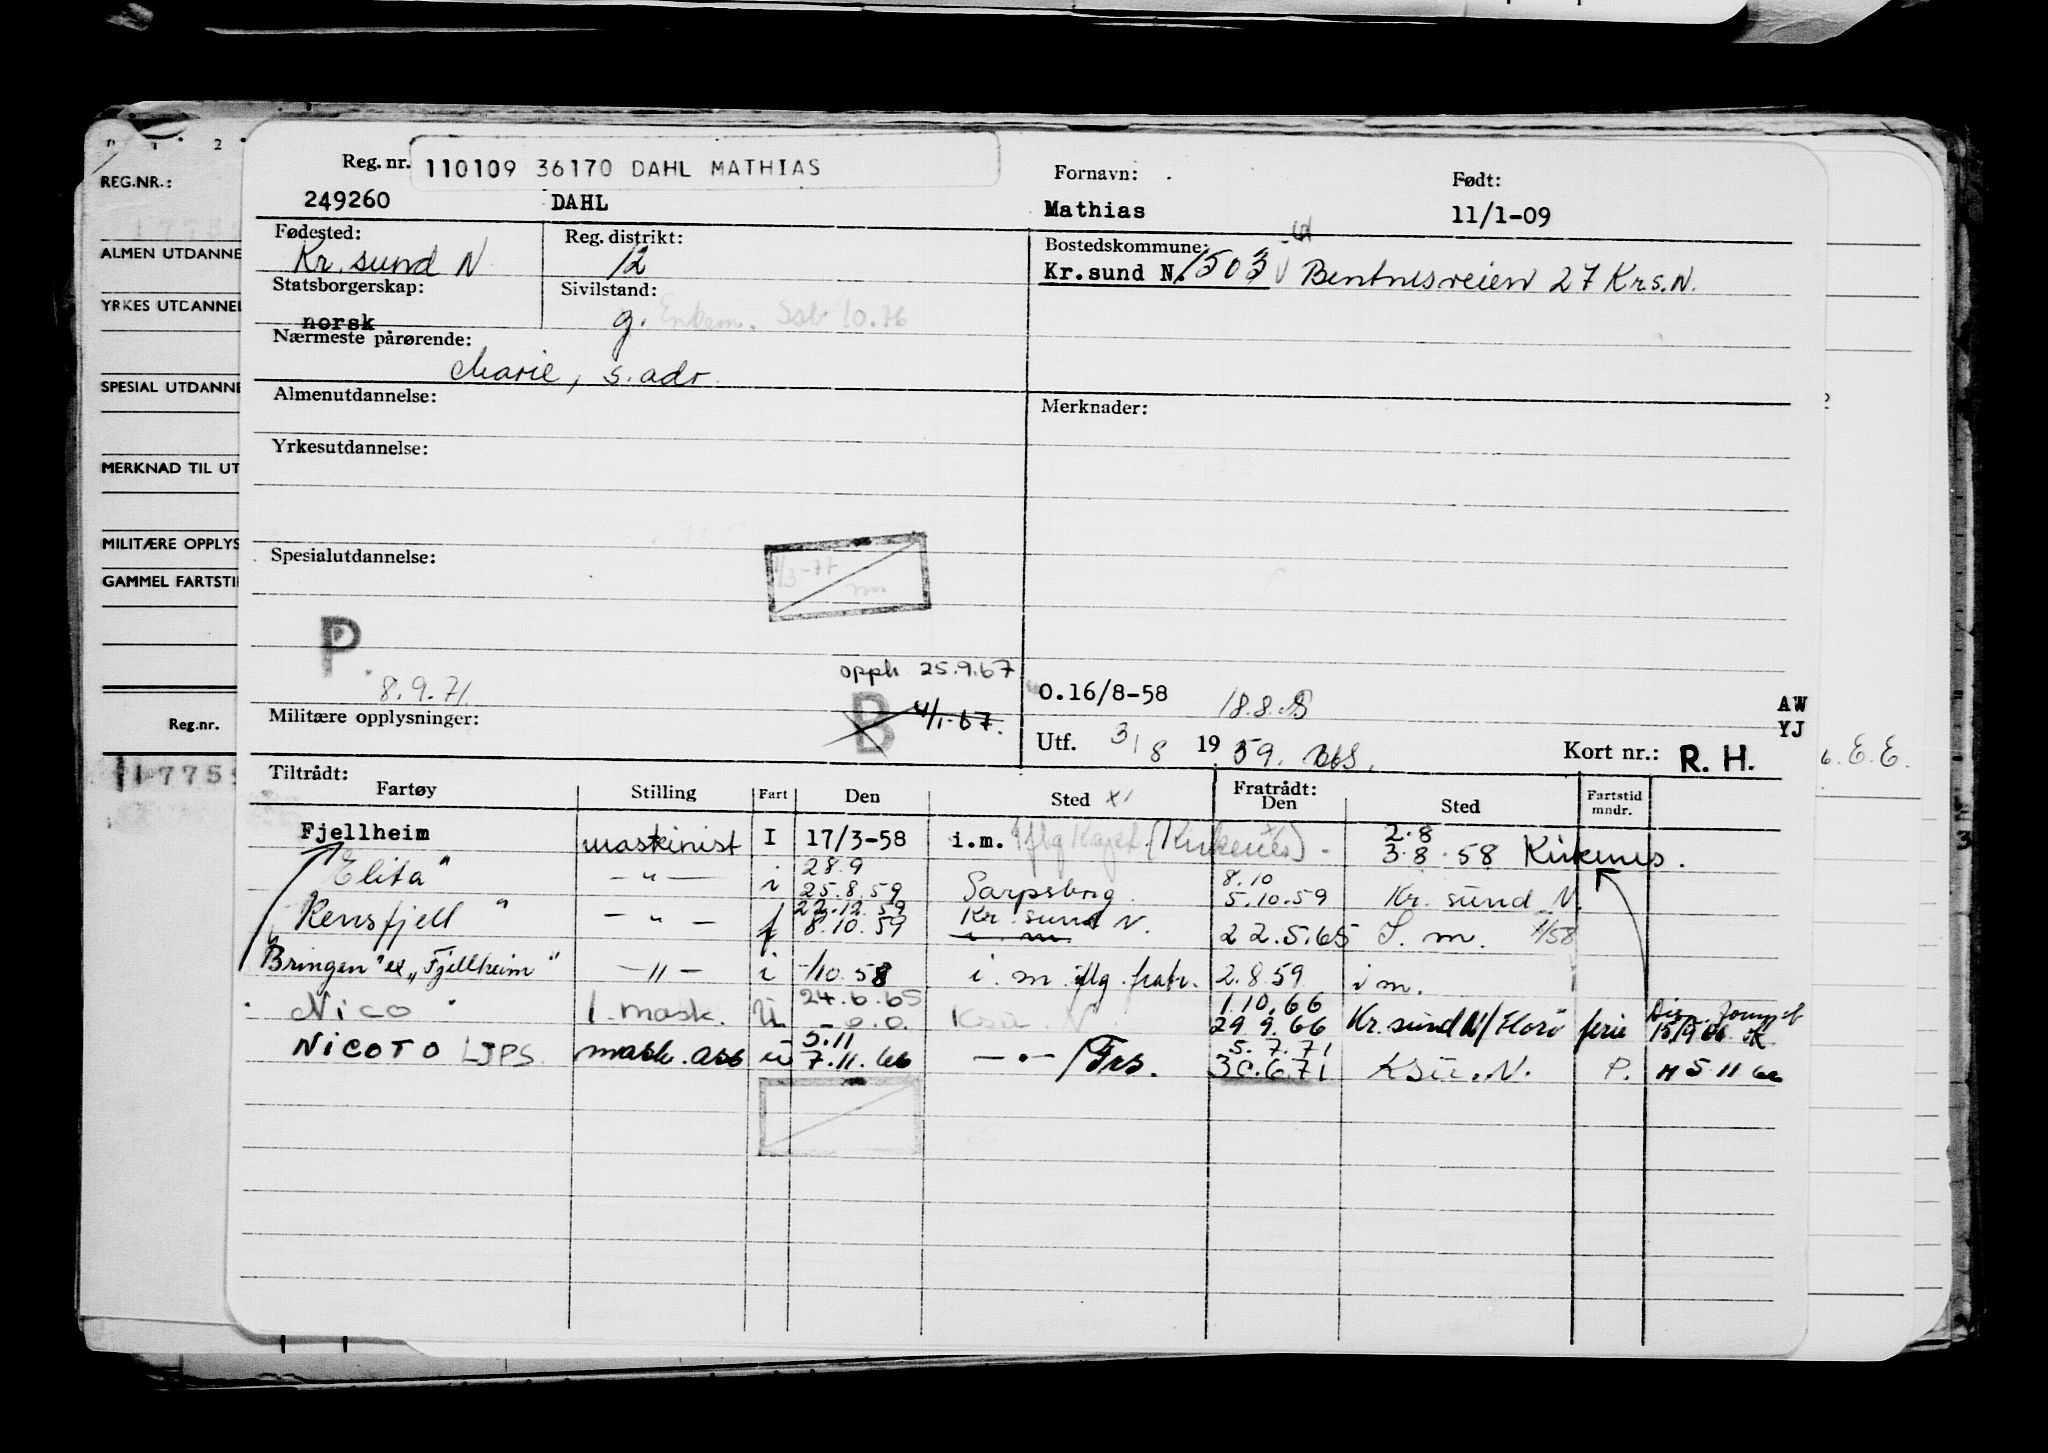 REG.NR.:
ALMEN UTDANNE
YRKES UTDANNEL
SPESIAL UTDANNE
MERKNAD TIL UT
MILITÆRE OPPLYS
GAMMEL FARTSTI
Reg.nr.
Reg. nr. 110109 36170 DAHL MATHIAS Fornavn: Født:
249260 DAHL Mathias 11/1-09
Fødested: Reg. distrikt: Bostedskommune:
Kr. sund N 12 Kr.sund N. 1503 Bentnesveien 27 Kr.s.N.
Statsborgerskap: Sivilstand:
norsk g. Enkem. Ssb 10.76
Nærmeste pårørende:
Marie, s. adr.
Almenutdannelse: Merknader:
Yrkesutdannelse:
Spesialutdannelse:
P
8.9.71. opph 25.9.67 O.16/8-58 18.8. AW
Militære opplysninger: B 4/1-67. YJ
Utf. 3/8 1959. Kort nr.: R. H. E. E.
Tiltrådt: Fratrådt:
Fartøy Stilling Fart Den Sted Den Sted Fartstid mndr.
Fjellheim maskinist I 17/3-58 i.m. iflg (Kirkenes). 2.8 3.8.58 Kirkenes.
Elita" — " — i 28.9 25.8.59 Sarpsborg 8.10 5.10.59 Kr. sund N.
Rensfjell " — " — f 22.12.59 8.10.59 Kr. sund N. i m 22.5.65 S. m.
"Bringen" ex "Fjellheim" — " — i -/10.58 i. m. iflg. fratr. 2.8.59 i m.
"Nico" 1. mask. U 24.6.65 Ksu N 1.10.66 29.9.66 Kr. sund N/Florø ferie
NICOTO LJPS mask. ass u 5.11 7.11.66 — " — /Frs. 5.7.71 30.6.71 Ksu. N. P. M 5.11 66